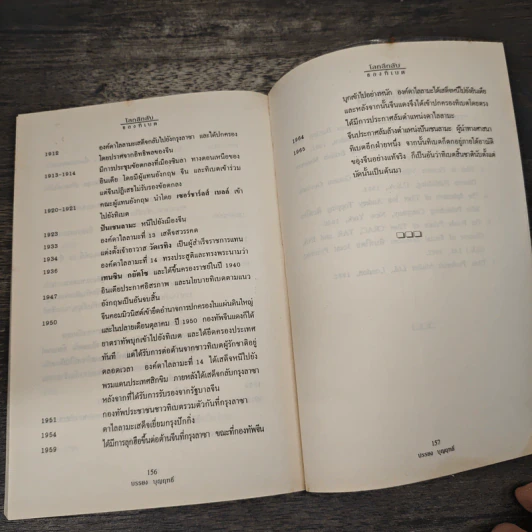 โลกลึกลับ
ของทิเบต
1912 องค์ดาไลลามะเสด็จกลับไปยังกรุงลาซา และได้ปกครอง
โดยปราศจากอิทธิพลของจีน
1913-1914 มีการประชุมข้อตกลงที่เมืองซิมลา ทางตอนเหนือของ
อินเดีย โดยมีผู้แทนอังกฤษ จีน และทิเบตเข้าร่วม
แต่จีนปฏิเสธไม่รับรองข้อตกลง
1920-1921 คณะผู้แทนอังกฤษ นำโดย เซลร์ชาร์ลส์ เบลล์ เข้า
ไปยังทิเบต
1923 ปันเชนลามะ หนีไปยังเมืองจีน
1933 องค์ดาไลลามะที่ 13 เสด็จสวรรคต
1934 แต่งตั้งเจ้าอาวาส วัดเรซิง เป็นผู้สำเร็จราชการแทน
1936 องค์ดาไลลามะที่ 14 ทรงประสูติและทรงพระนามว่า
เทนซิน กยัตโซ และได้ขึ้นครองราชย์ในปี 1940
1947 อินเดียประกาศอิสรภาพ และนโยบายทิเบตตามแนว
อังกฤษเป็นอันจบสิ้น
1950 จีนคอมมิวนิสต์เข้ายึดอำนาจการปกครองในแผ่นดินใหญ่
และในปลายเดือนตุลาคม ปี 1950 กองทัพจีนแดงก็ได้
ยาตราทัพบุกเข้าไปยังทิเบต และได้ยึดครองประเทศ
ทันที แต่ได้รับการต่อต้านจากชาวทิเบตผู้รักชาติอยู่
ตลอดเวลา องค์ดาไลลามะที่ 14 ได้เสด็จหนีไปยัง
พรมแดนประเทศสิกขิม ภายหลังได้เสด็จกลับกรุงลาซา
หลังจากที่ได้รับการรับรองจากรัฐบาลจีน
1951 กองทัพประชาชนชาวทิเบตรวมตัวกันที่กรุงลาซา
1954 ดาไลลามะเสด็จเยี่ยมกรุงปักกิ่ง
1959 ได้มีการลุกฮือขึ้นต่อต้านจีนที่กรุงลาซา ขณะที่กองทัพจีน
156
บรรยง บุญฤทธิ์
โลกลึกลับ
ของทิเบต
บุกเข้าไปอย่างหนัก องค์ดาไลลามะได้เสด็จหนีไปยังอินเดีย
และหลังจากนั้นจีนแดงจึงได้เข้าปกครองทิเบตโดยตรง
1964 ได้มีการประกาศล้มตำแหน่งดาไลลามะ
1965 จีนประกาศล้มล้างตำแหน่งปันเชนลามะ ผู้นำทางศาสนา
ทิเบตอีกฝ่ายหนึ่ง จากนั้นทิเบตก็ตกอยู่ภายใต้อาณัติ
ของจีนอย่างแท้จริง ก็เป็นอันว่าทิเบตสิ้นชาตินับตั้งแต่
บัดนั้นเป็นต้นมา
157
บรรยง บุญฤทธิ์